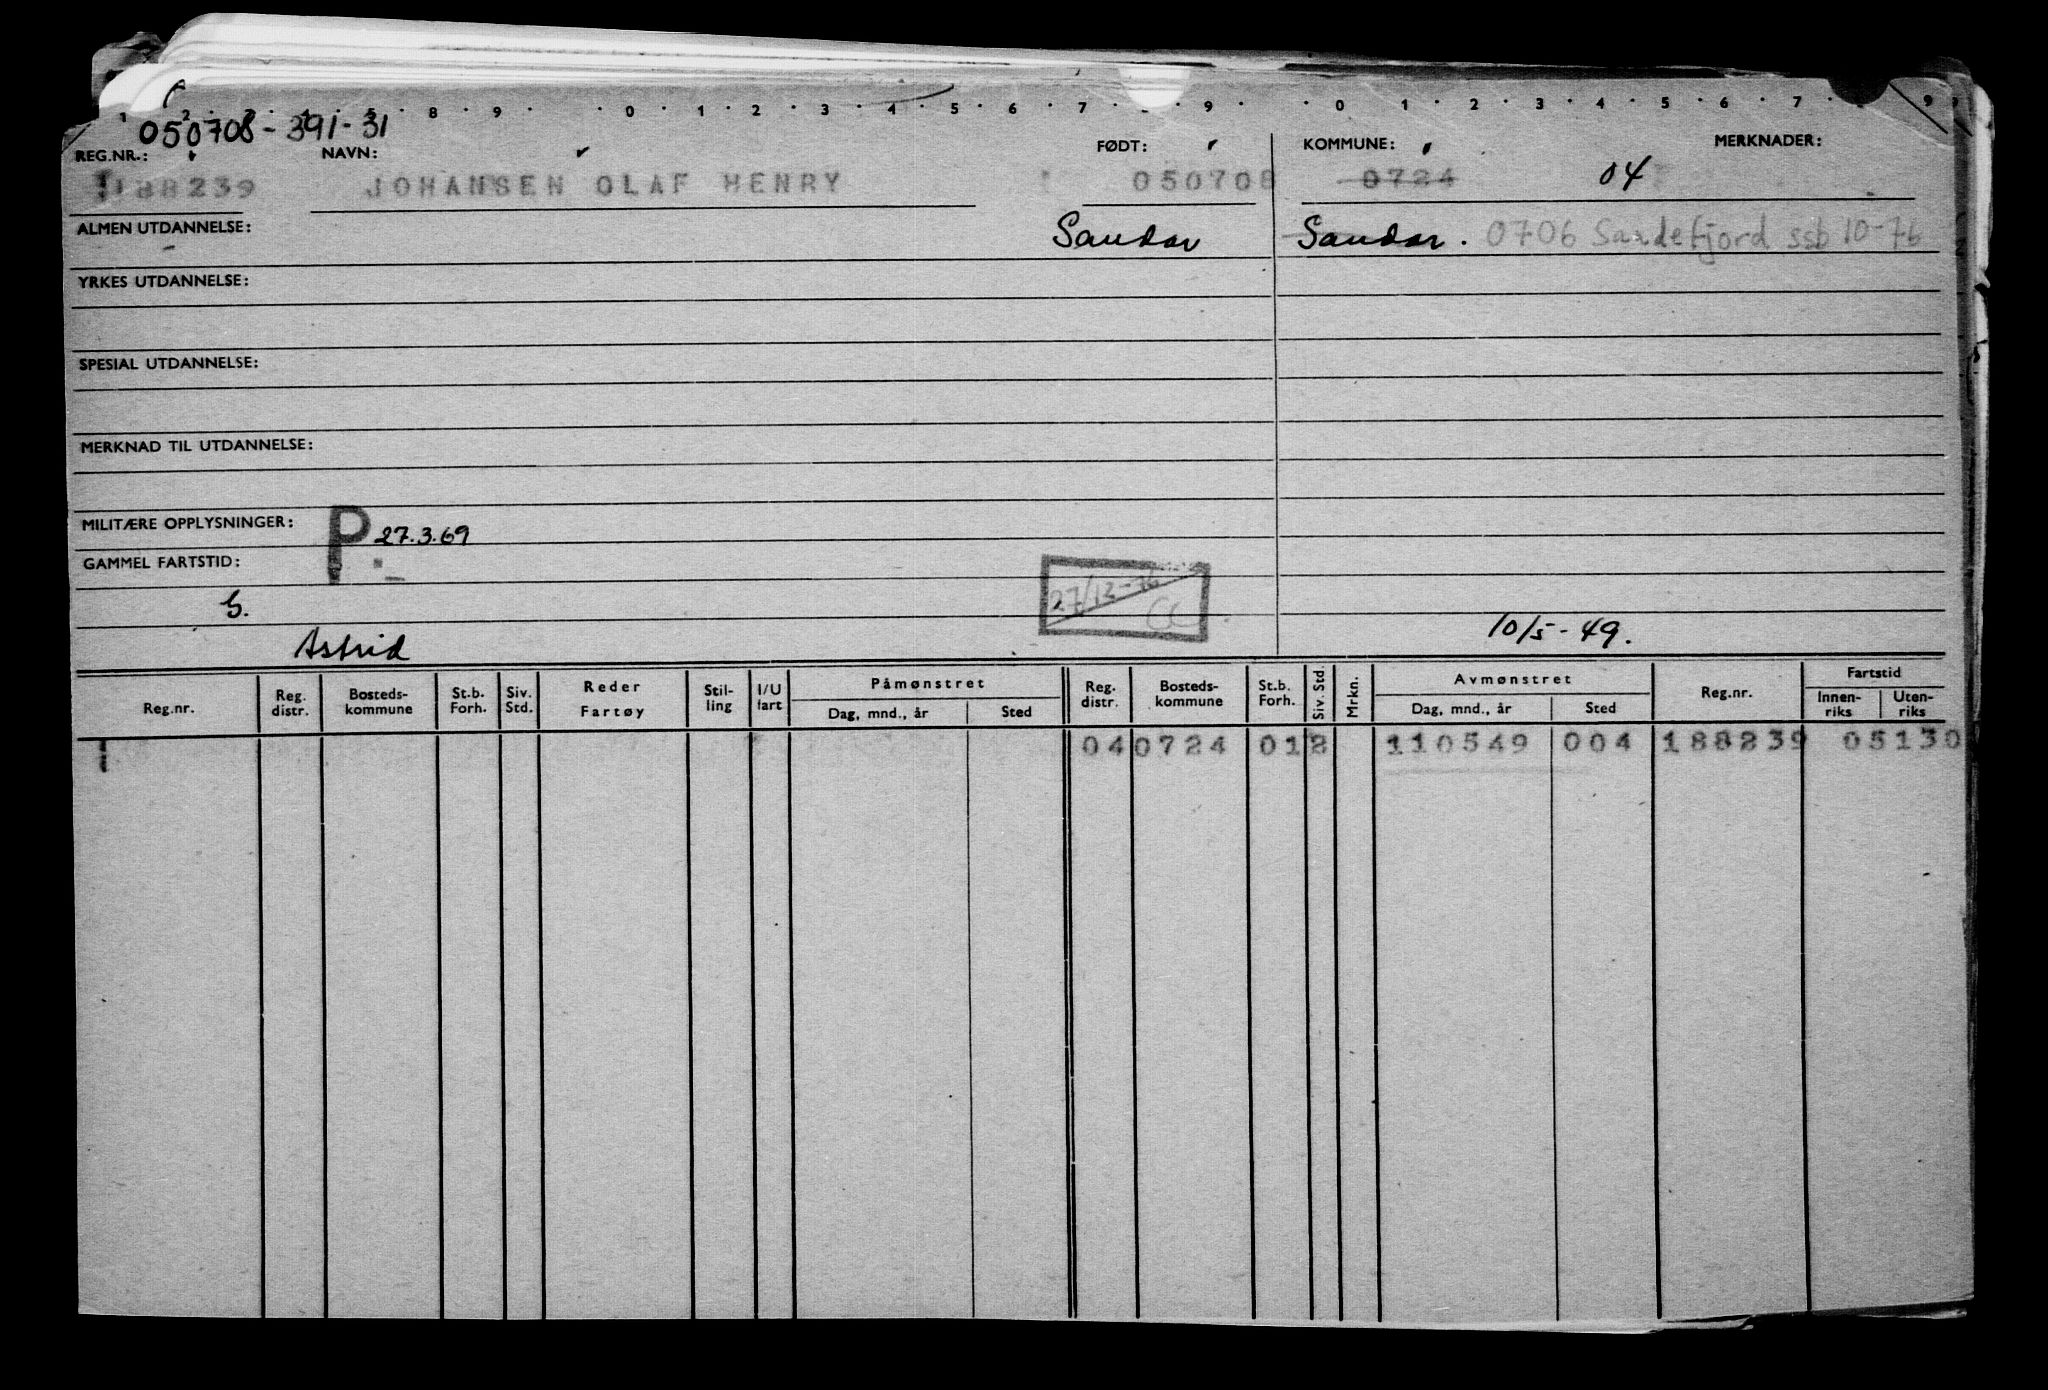 050708-391-31
REG.NR.: NAVN: FØDT: KOMMUNE: MERKNADER:
188239 JOHANSEN OLAF HENRY 050708 0724 04
ALMEN UTDANNELSE: Sandar Sandar. 0706 Sandefjord ssb 10-76
YRKES UTDANNELSE:
SPESIAL UTDANNELSE:
MERKNAD TIL UTDANNELSE:
MILITÆRE OPPLYSNINGER: P 27.3.69
GAMMEL FARTSTID:
27/12-76
G. 10/5-49.
Astrid
Reg.nr. Reg. distr. Bosteds-kommune St.b. Forh. Siv. Std. Reder Fartøy Stil-ling I/U fart Påmønstret Dag, mnd., år Sted Reg. distr. Bosteds-kommune St.b. Forh. Siv. Std. Mrkn. Avmønstret Dag, mnd., år Sted Reg.nr. Fartstid Innen-riks Uten-riks
04 0724 01 2 110549 004 188239 05130